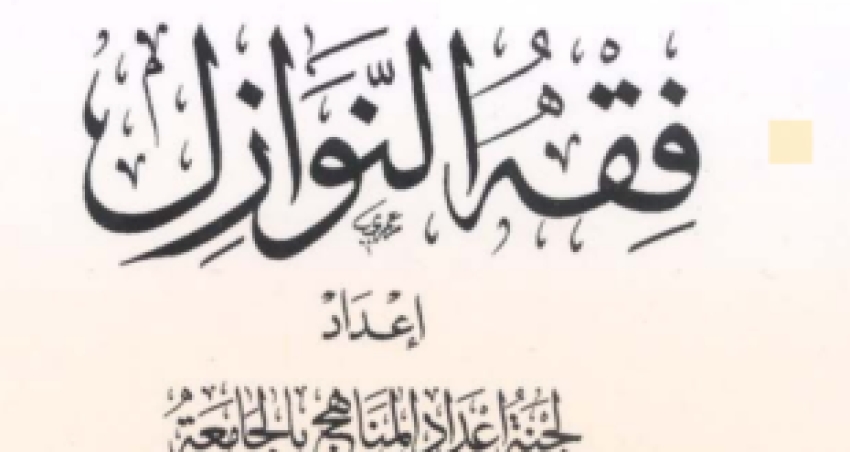 فِقْهُ النَّوَازِلِ
إِعْدَادُ
لَجْنَةُ إِعْدَادِ المَنَاهِجِ بِالجَامِعَةِ